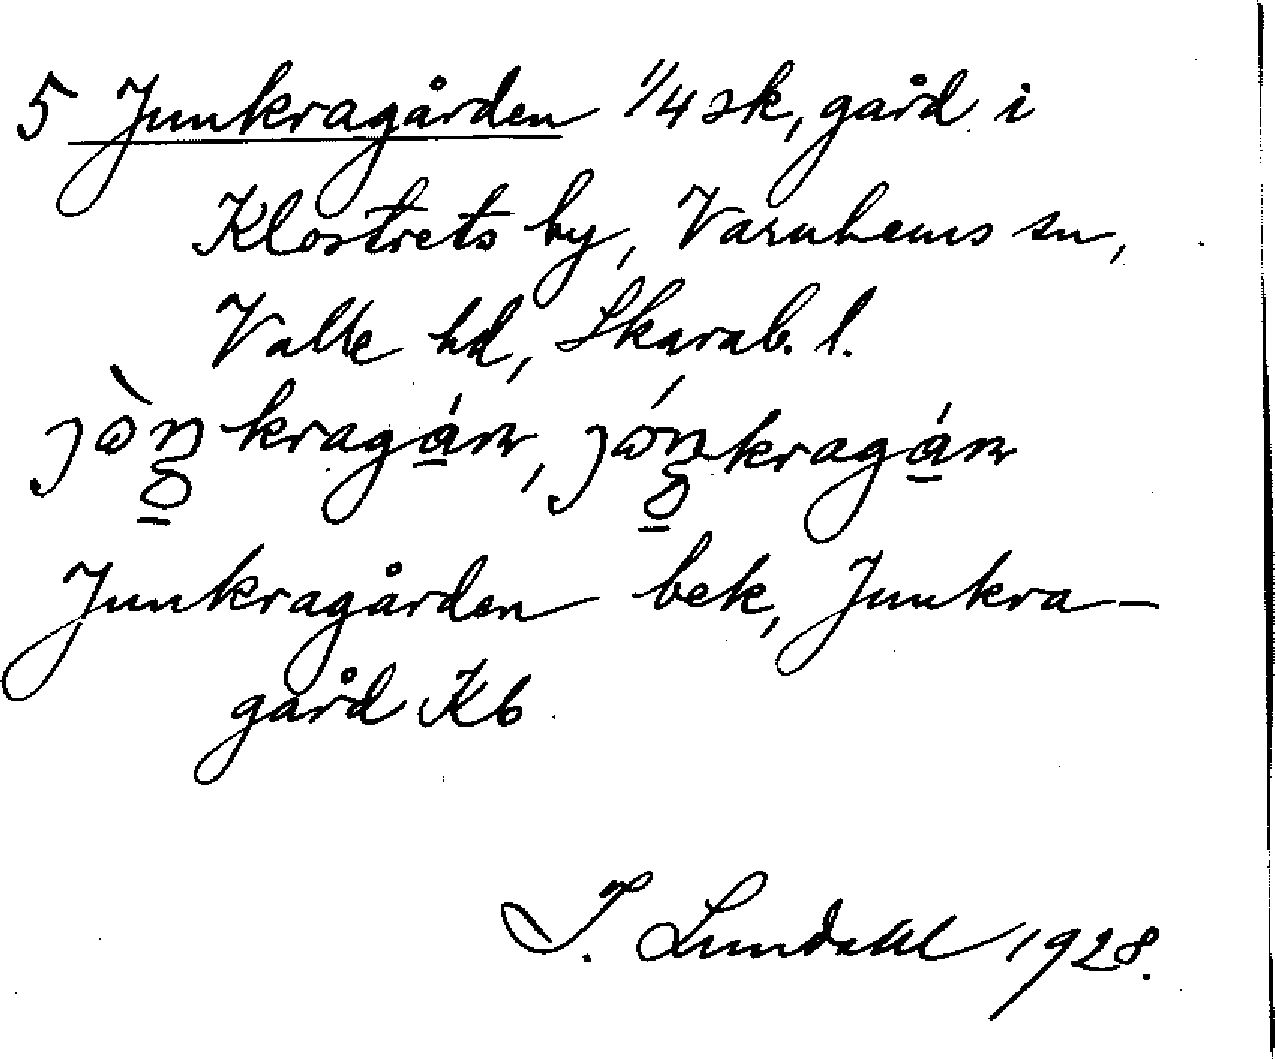 5 Junkragården 1/4 sk, gård i
Klostrets by, Varnhems sn,
Valle hd, Skarab. l.
Junkragården bek, Junkra-
gård Kb
I. Lundahl 1928.